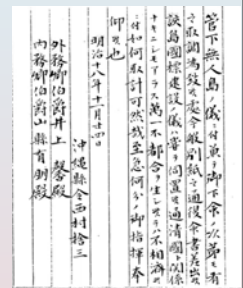 管下無人島ノ儀ニ付兼テ御下命ノ次第モ有
之取調為致候處今般別紙ノ通復命書差出
該島國標建設ノ儀ハ嘗テ伺置候通清國ト関係
ナキニシモアラス萬一不都合ヲ生シ候テハ不相済候
ニ付如何取計可然哉至急何分ノ御指揮奉
仰候也
明治十八年十一月廿四日
沖縄縣令西村捨三
外務卿伯爵井上馨殿
内務卿伯爵山縣有朋殿